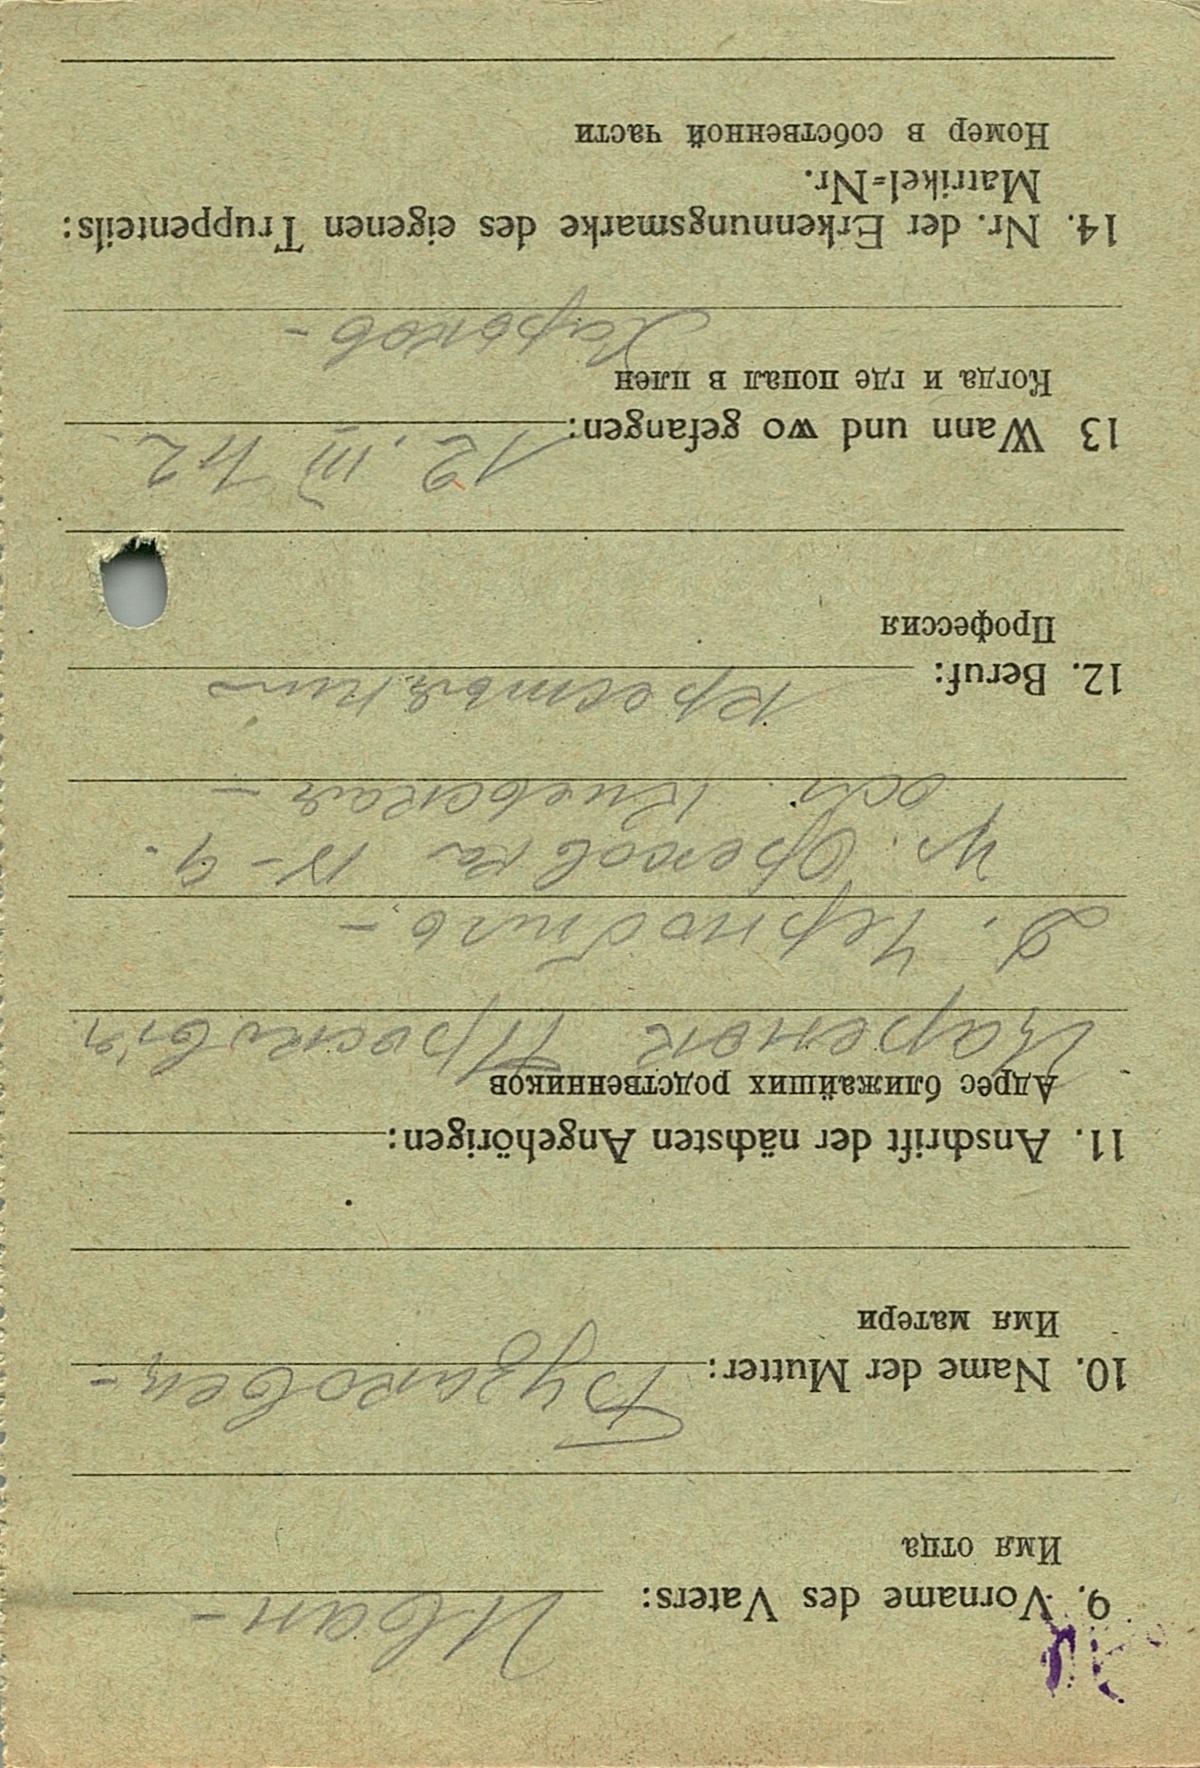 9. Vorname des Vaters: Иван -
Имя отца
10. Name der Mutter: Бузиновец -
Имя матери
11. Anschrift der nächsten Angehörigen:
Адрес ближайших родственников
Царенок
г. Чернобиль -
ул.
осл. Киевская -
12. Beruf: крестьянин
Профессия
13 Wann und wo gefangen: 12. III 42.
Когда и где попал в плен
Харьков -
14. Nr. der Erkennungsmarke des eigenen Truppenteils:
Matrikel=Nr.
Номер в собственной части